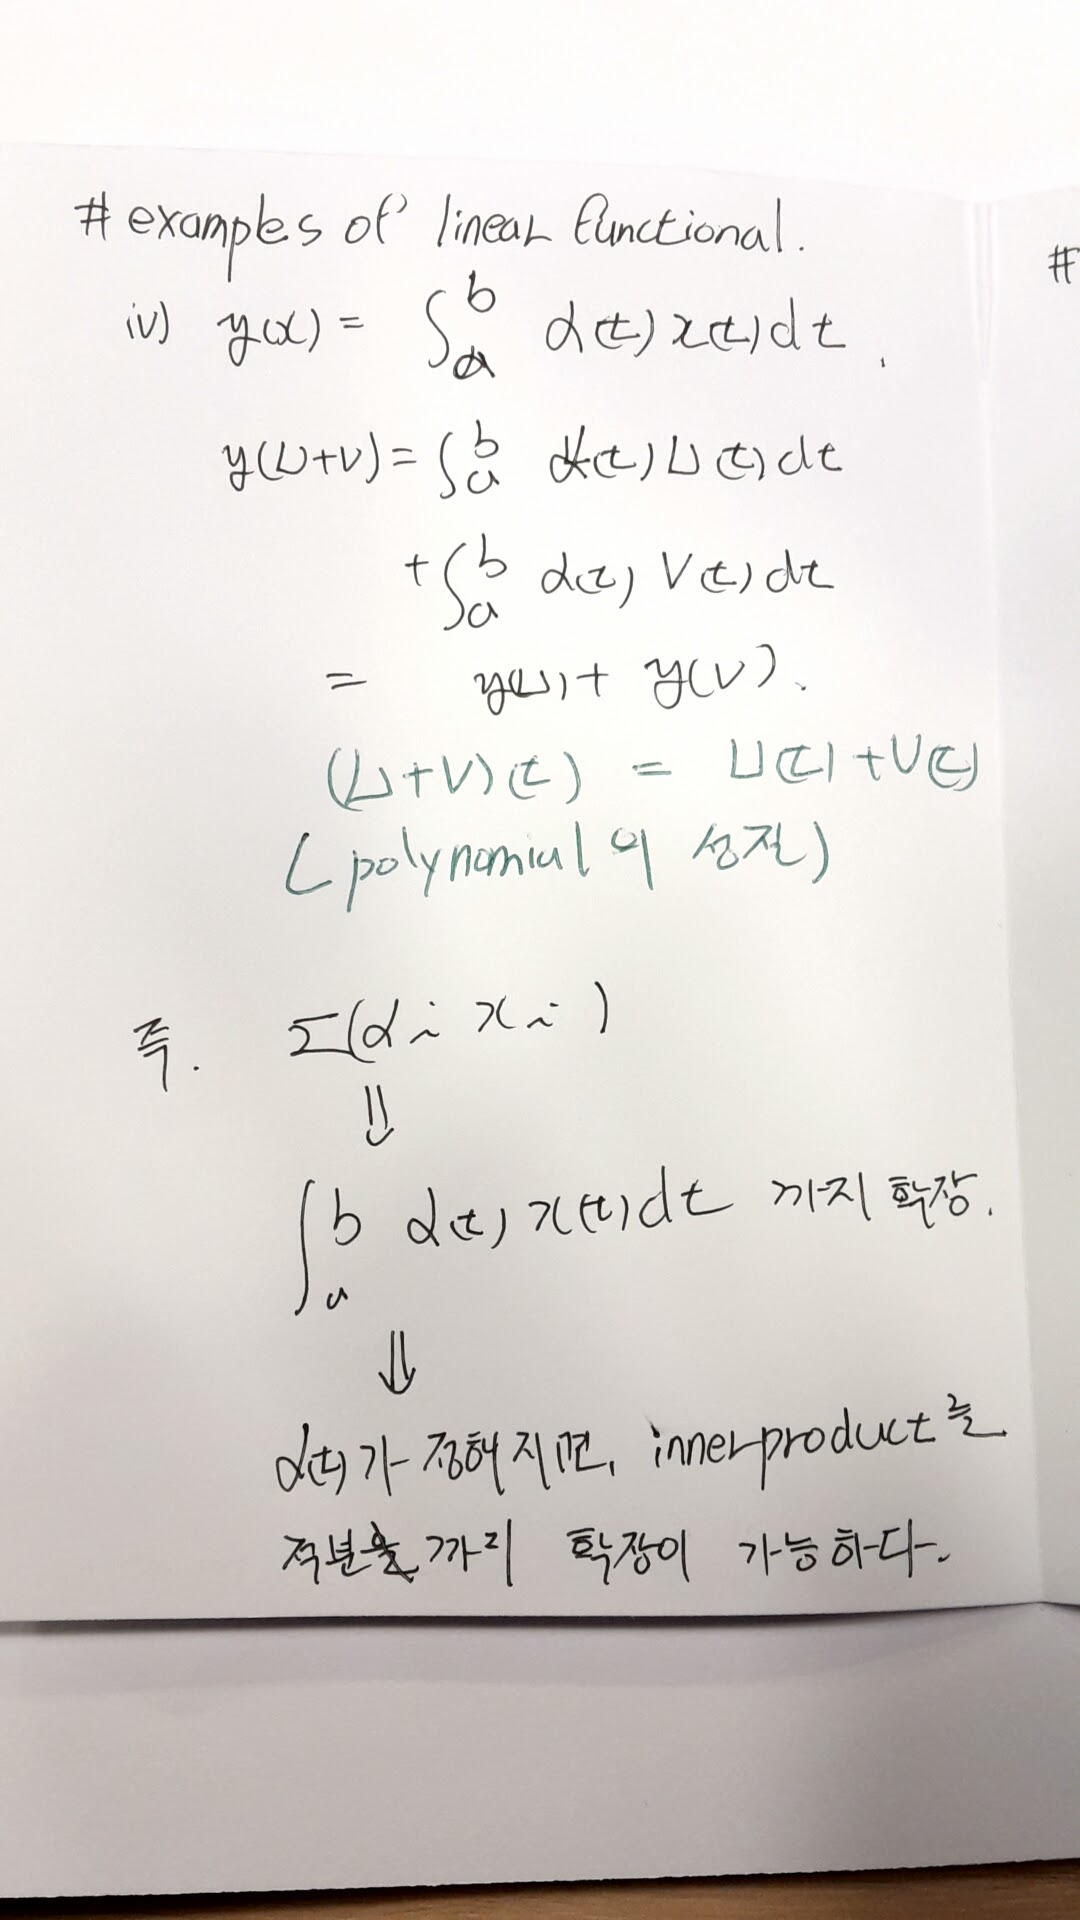 # examples of linear functional.
#
iv) y(x) = ∫_a^b α(t) x(t) dt.
y(U+V) = ∫_a^b α(t) U(t) dt
+ ∫_a^b α(t) V(t) dt
= y(U) + y(V).
(U+V)(t) = U(t) + V(t)
(polynomial의 성질)
즉. Σ(αi xi)
⇓
∫_a^b α(t) x(t) dt 까지 확장.
⇓
α(t)가 정해지면, inner product를
적분을 까지 확장이 가능하다.